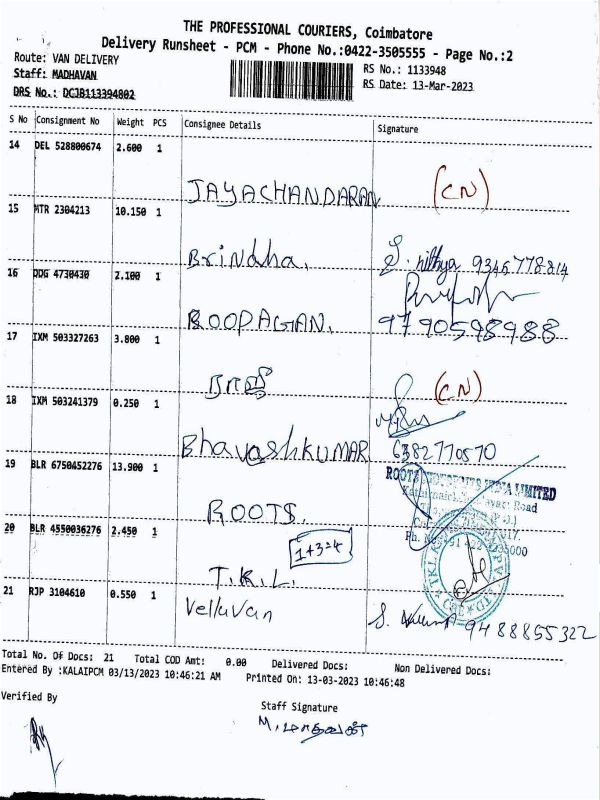 THE PROFESSIONAL COURIERS, Coimbatore
Delivery Runsheet - PCM - Phone No.:0422-3505555 - Page No.:2
Route: VAN DELIVERY
RS No.: 1133948
Staff: MADHAVAN
RS Date: 13-Mar-2023
DRS No.: DCJB113394802
S No Consignment No Weight PCS Consignee Details Signature
14 DEL 528800674 2.600 1
JAYACHANDARAN (CN)
15 MTR 2304213 10.150 1
Brindha. S. nithya 9346778814
16 DDG 4730430 2.100 1
ROOPAGIAN. 9790598988
17 IXM 503327263 3.800 1
(CN)
18 IXM 503241379 0.250 1
Bhavashkumar 6382770570
19 BLR 6750452276 13.900 1
ROOTS INDIA LIMITED
ROOTS.
20 BLR 4550036276 2.450 1
1+3=4
T.K.L.
21 RJP 3104610 0.550 1
Velluvan S. 9488855322
Total No. Of Docs: 21 Total COD Amt: 0.00 Delivered Docs: Non Delivered Docs:
Entered By :KALAIPCM 03/13/2023 10:46:21 AM Printed On: 13-03-2023 10:46:48
Verified By
Staff Signature
M. மாதவன்